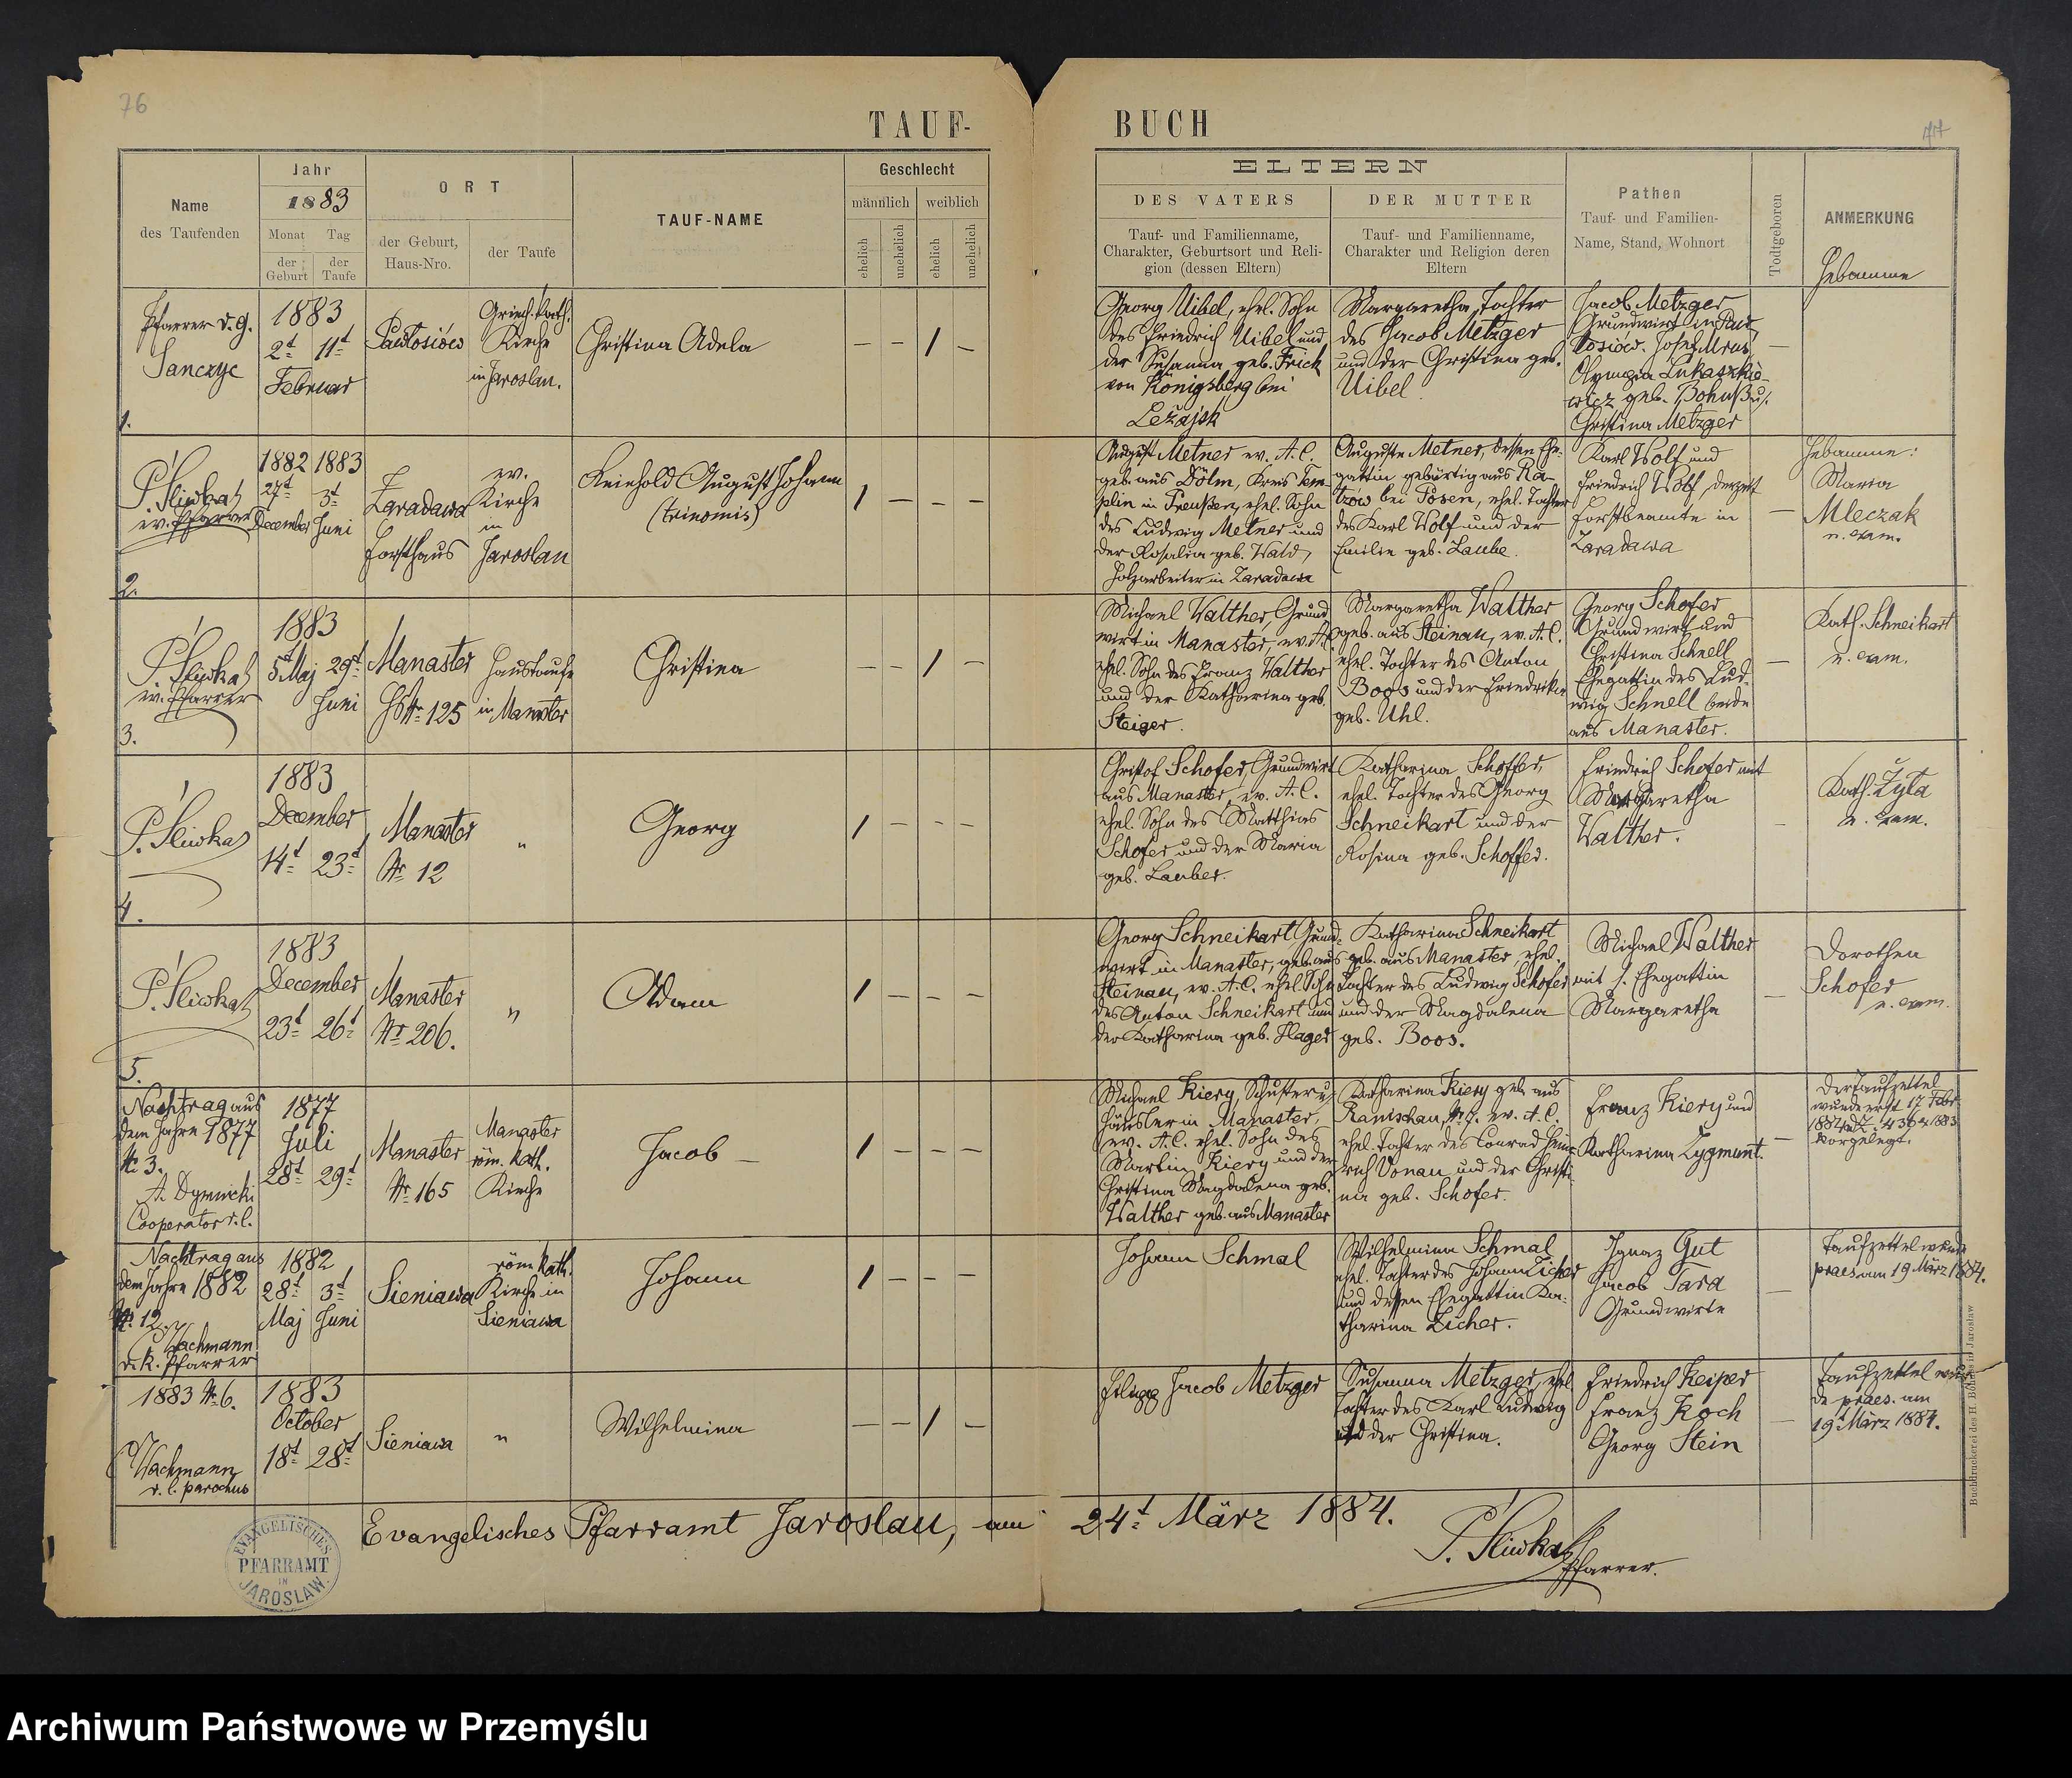 76
TAUF-
BUCH
77
Name
des Taufenden
Jahr
1883
Monat
Tag
der Geburt
der Taufe
ORT
der Geburt,
Haus-Nro.
der Taufe
TAUF-NAME
Geschlecht
männlich
weiblich
ehelich
unehelich
ehelich
unehelich
ELTERN
DES VATERS
Tauf- und Familienname,
Charakter, Geburtsort und Reli-
gion (dessen Eltern)
DER MUTTER
Tauf- und Familienname,
Charakter und Religion deren
Eltern
Pathen
Tauf- und Familien-
Name, Stand, Wohnort
Todtgeboren
ANMERKUNG
Hebamme
1.
Pfarrer v. g.
Sanczyc
1883
2t 11t
Februar
Griech. kath.
Kirche
in Jaroslau.
Christina Adela
– – 1 –
Georg Uibel, ehel. Sohn
des Friedrich Uibel und
der Susanna geb. Frick
von Königsberg bei
Leżajsk
Margaretha, Tochter
des Jacob Metzger
und der Christina geb.
Uibel
Jacob Metzger
Grundwirt in Paw
łosiów. Josef Mrus
Olympia Łukaszkie-
wicz geb. Bohuß u.
Christina Metzger
–
2.
P. Śliwka
ev. Pfarrer
1882 1883
27t 3t
December Juni
Zaradawa
Forsthaus
ev.
Kirche
in
Jaroslau
Reinhold August Johann
(trinomis)
1 – – –
August Metner ev. A. C.
geb. aus Dölm, Kreis Tem-
plin in Preußen, ehel. Sohn
des Ludwig Metner und
der Rosalia geb. Wald,
Holzarbeiter in Zaradawa
Auguste Metner, dessen Ehe-
gattin gebürtig aus Ra-
tzow bei Posen, ehel. Tochter
des Karl Wolf und der
Emilie geb. Laube.
Karl Wolf und
Friedrich Wolf, derzeit
Forstbeamte in
Zaradawa
–
Hebamme:
Maria
Mleczak
n. exam.
3.
P. Śliwka
ev. Pfarrer
1883
5t Maj 29t
Juni
Manaster
HNr 125
Haustaufe
in Manaster
Christina
– – 1 –
Michael Walther, Grund
wirt in Manaster, ev. A. C.
ehel. Sohn des Franz Walther
und der Katharina geb.
Steiger.
Margaretha Walther
geb. aus Steinau, ev. A. C.
ehel. Tochter des Anton
Boos und der Friedrike
geb. Uhl.
Georg Schofer
Grundwirt und
Christina Schnell
Ehegattin des Lud-
wig Schnell beide
aus Manaster.
–
Kath. Schneikart
n. exam.
4.
P. Śliwka
1883
December
14t 23t
Manaster
Nr 12
"
Georg
1 – – –
Christof Schofer, Grundwirt
aus Manaster, ev. A. C.
ehel. Sohn des Matthias
Schofer und der Maria
geb. Lauber.
Katharina Schoffer,
ehel. Tochter des Georg
Schneikart und der
Rosina geb. Schoffer.
Friedrich Schofer mit
Margaretha
Walther.
–
Kath. Żyła
n. exam.
5.
P. Śliwka
1883
December
23t 26t
Manaster
Nr 206.
"
Adam
1 – – –
Georg Schneikart Grund-
wirt in Manaster, geb. aus
Steinau, ev. A. C. ehel. Sohn
des Anton Schneikart und
der Katharina geb. Hager
Katharina Schneikart
geb. aus Manaster, ehel.
Tochter des Ludwig Schofer
und der Magdalena
geb. Boos.
Michael Walther
mit s. Ehegattin
Margaretha
–
Dorothea
Schofer
n. exam.
Nachtrag aus
dem Jahre 1877
Nr 3.
A. Dymnicki
Cooperator r. l.
1877
Juli
28t 29t
Manaster
Nr 165
Manaster
röm. kath.
Kirche
Jacob –
1 – – –
Michael Kiery, Schuster u.
Häusler in Manaster,
ev. A. C. ehel. Sohn des
Martin Kiery und der
Christina Magdalena geb.
Walther geb. aus Manaster
Katharina Kiery geb. aus
Ranischau, ev. A. C.
ehel. Tochter des Conrad Hein-
rich Vonau und der Christi
na geb. Schofer.
Franz Kiery und
Katharina Zygmunt.
–
Der Taufzettel
wurde erst 17 Febr.
1884
vorgelegt.
Nachtrag aus
dem Jahre 1882
Nr. 12.
Wachmann
r. k. Pfarrer
1882
28t 3t
Maj Juni
Sieniawa
röm. kath.
Kirche in
Sieniawa
Johann
1 – – –
Johann Schmal
Wilhelmina Schmal
ehel. Tochter des Johann Zicher
und dessen Ehegattin Ka-
tharina Zicher.
Ignaz Gut
Jacob Tara
Grundwirte
–
Taufzettel wurde
praes. am 19 März 1884.
1883 Nr 6.
Wachmann
r. l. parochus
1883
October
18t 28t
Sieniawa
"
Wilhelmina
– – 1 –
Filipp Jacob Metzger
Susanna Metzger, ehel.
Tochter des Karl Ludwig
und der Christina.
Friedrich Keiper
Franz Koch
Georg Stein
–
Taufzettel wur
de praes. am
19t März 1884.
Buchdruckerei des H. in Jarosław
Evangelisches Pfarramt Jaroslau, am 24t März 1884.
P. Śliwka
Pfarrer.
EVANGELISCHES
PFARRAMT
IN
JAROSLAW.
Archiwum Państwowe w Przemyślu